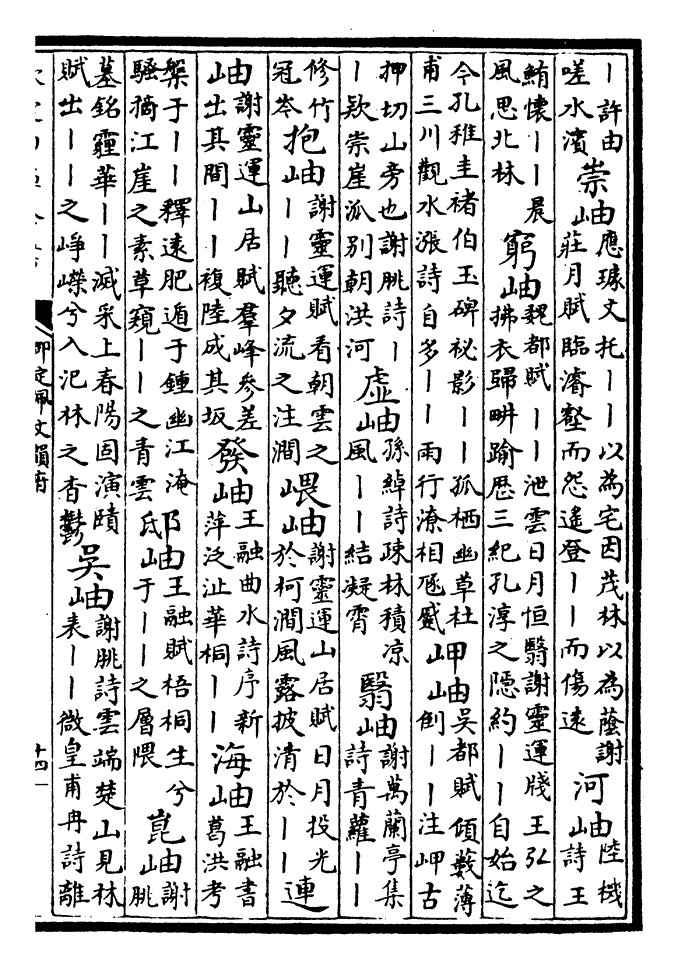 ｜許由
嗟水濱
崇岫
應璩文托｜｜以為宅因茂林以為蔭謝
莊月賦臨濬壑而怨遙登｜｜而傷遠
河岫
陸機
詩王
鮪懷｜｜晨
風思北林
窮岫
魏都賦｜｜泄雲日月恒翳謝靈運牋王弘之
拂衣歸畊踰歷三紀孔淳之隱約｜｜自始迄
今孔稚圭褚伯玉碑祕影｜｜孤栖幽草杜
甫三川觀水漲詩自多｜｜雨行潦相豗蹙
岬岫
吳都賦傾藪薄
倒｜｜注岬古
押切山旁也謝朓詩｜
｜欵崇崖派別朝洪河
虛岫
孫綽詩疎林積凉
風｜｜結凝霄
翳岫
謝萬蘭亭集
詩青蘿｜｜
修竹
冠岑
抱岫
謝靈運賦看朝雲之
｜｜聽夕流之注澗
嵔岫
謝靈運山居賦日月投光
於柯澗風露披清於｜｜
連
岫
謝靈運山居賦羣峰參差
出其間｜｜複陸成其坂
發岫
王融曲水詩序新
萍泛沚華桐｜｜
海岫
王融書
葛洪考
槃于｜｜釋遠肥遁于鍾幽江淹
騷摘江崖之素草窺｜｜之青雲
邸岫
王融賦梧桐生兮
于｜｜之層隈
崑岫
謝
朓
墓銘霾華｜｜減采上春陽固演賾
賦出｜｜之崢嶸兮入汜林之杳鬱
吳岫
謝朓詩雲端楚山見林
表｜｜微皇甫冉詩離
御定佩文韻府
十四